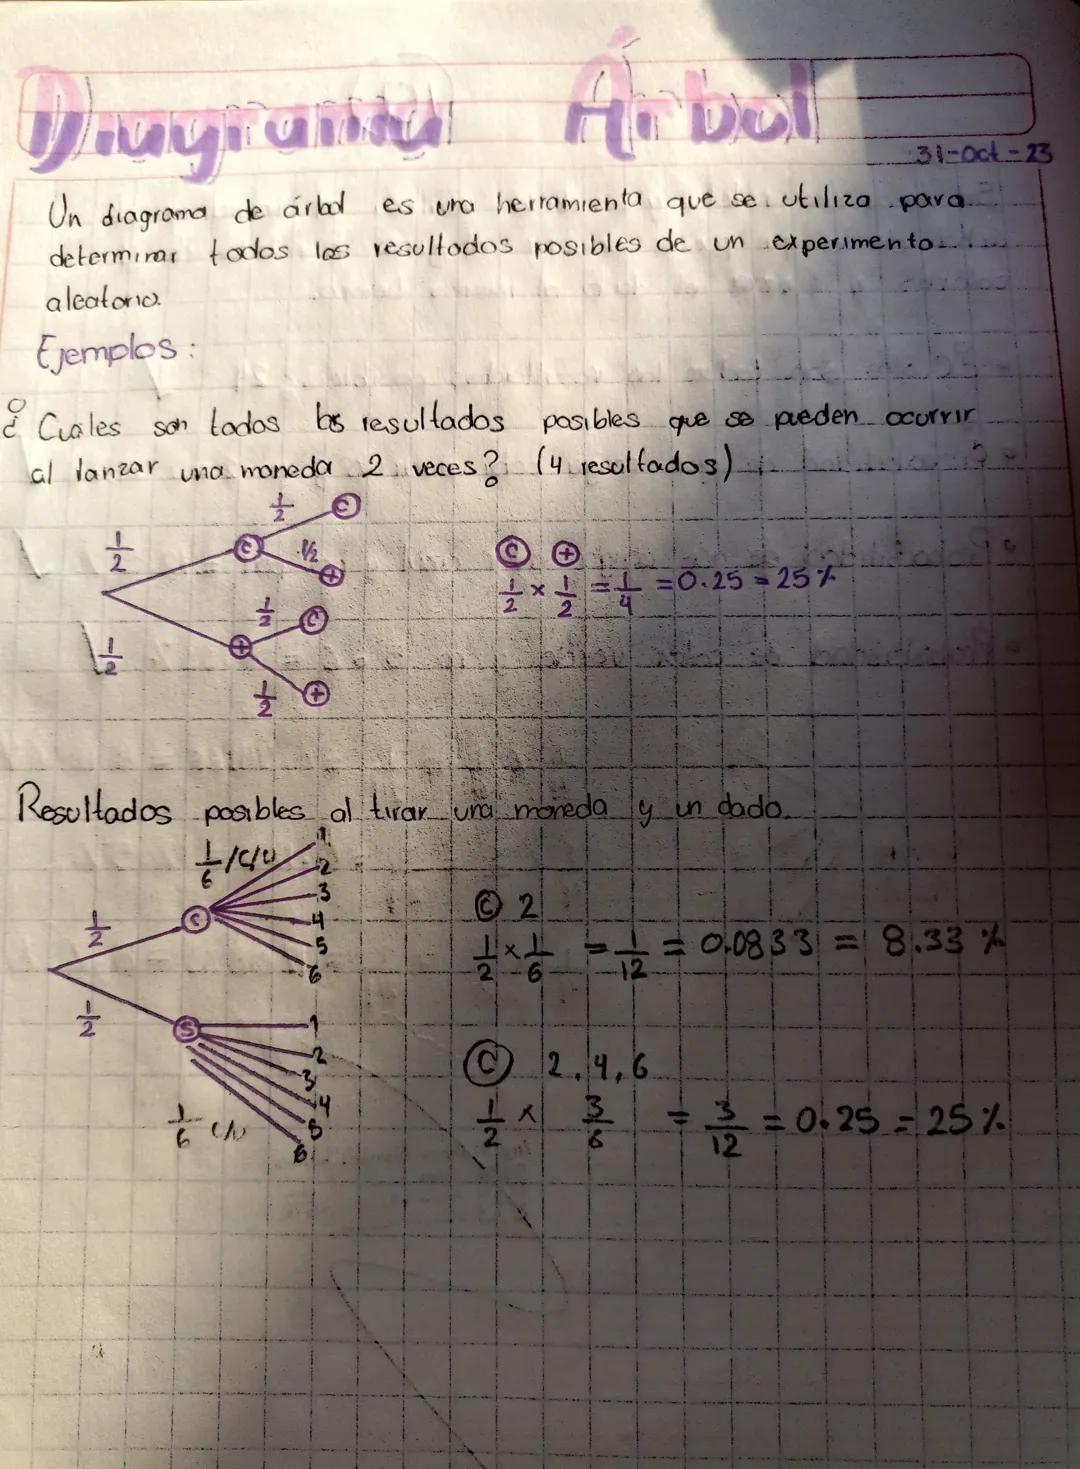 Diagrama Árbol
31-Oct-23
Un diagrama de árbol es una herramienta que se utiliza para
determinar todos los resultados posibles de un experimento
aleatorio.
Ejemplos:
¿Cuales son todos los resultados posibles que se pueden ocurrir
al lanzar una moneda 2 veces? (4 resultados)
1/2 C 1/2 C
1/2 +
1/2 + 1/2 C
1/2 +
C +
1/2 × 1/2 = 1/4 = 0.25 = 25%
Resultados posibles al tirar una moneda y un dado.
1/6 c/u
1/2 C 1 2 3 4 5 6
1/2 S 1 2 3 4 5 6
1/6 c/u
C 2
1/2 × 1/6 = 1/12 = 0.0833 = 8.33 %
C 2,4,6
1/2 × 3/6 = 3/12 = 0.25 = 25%